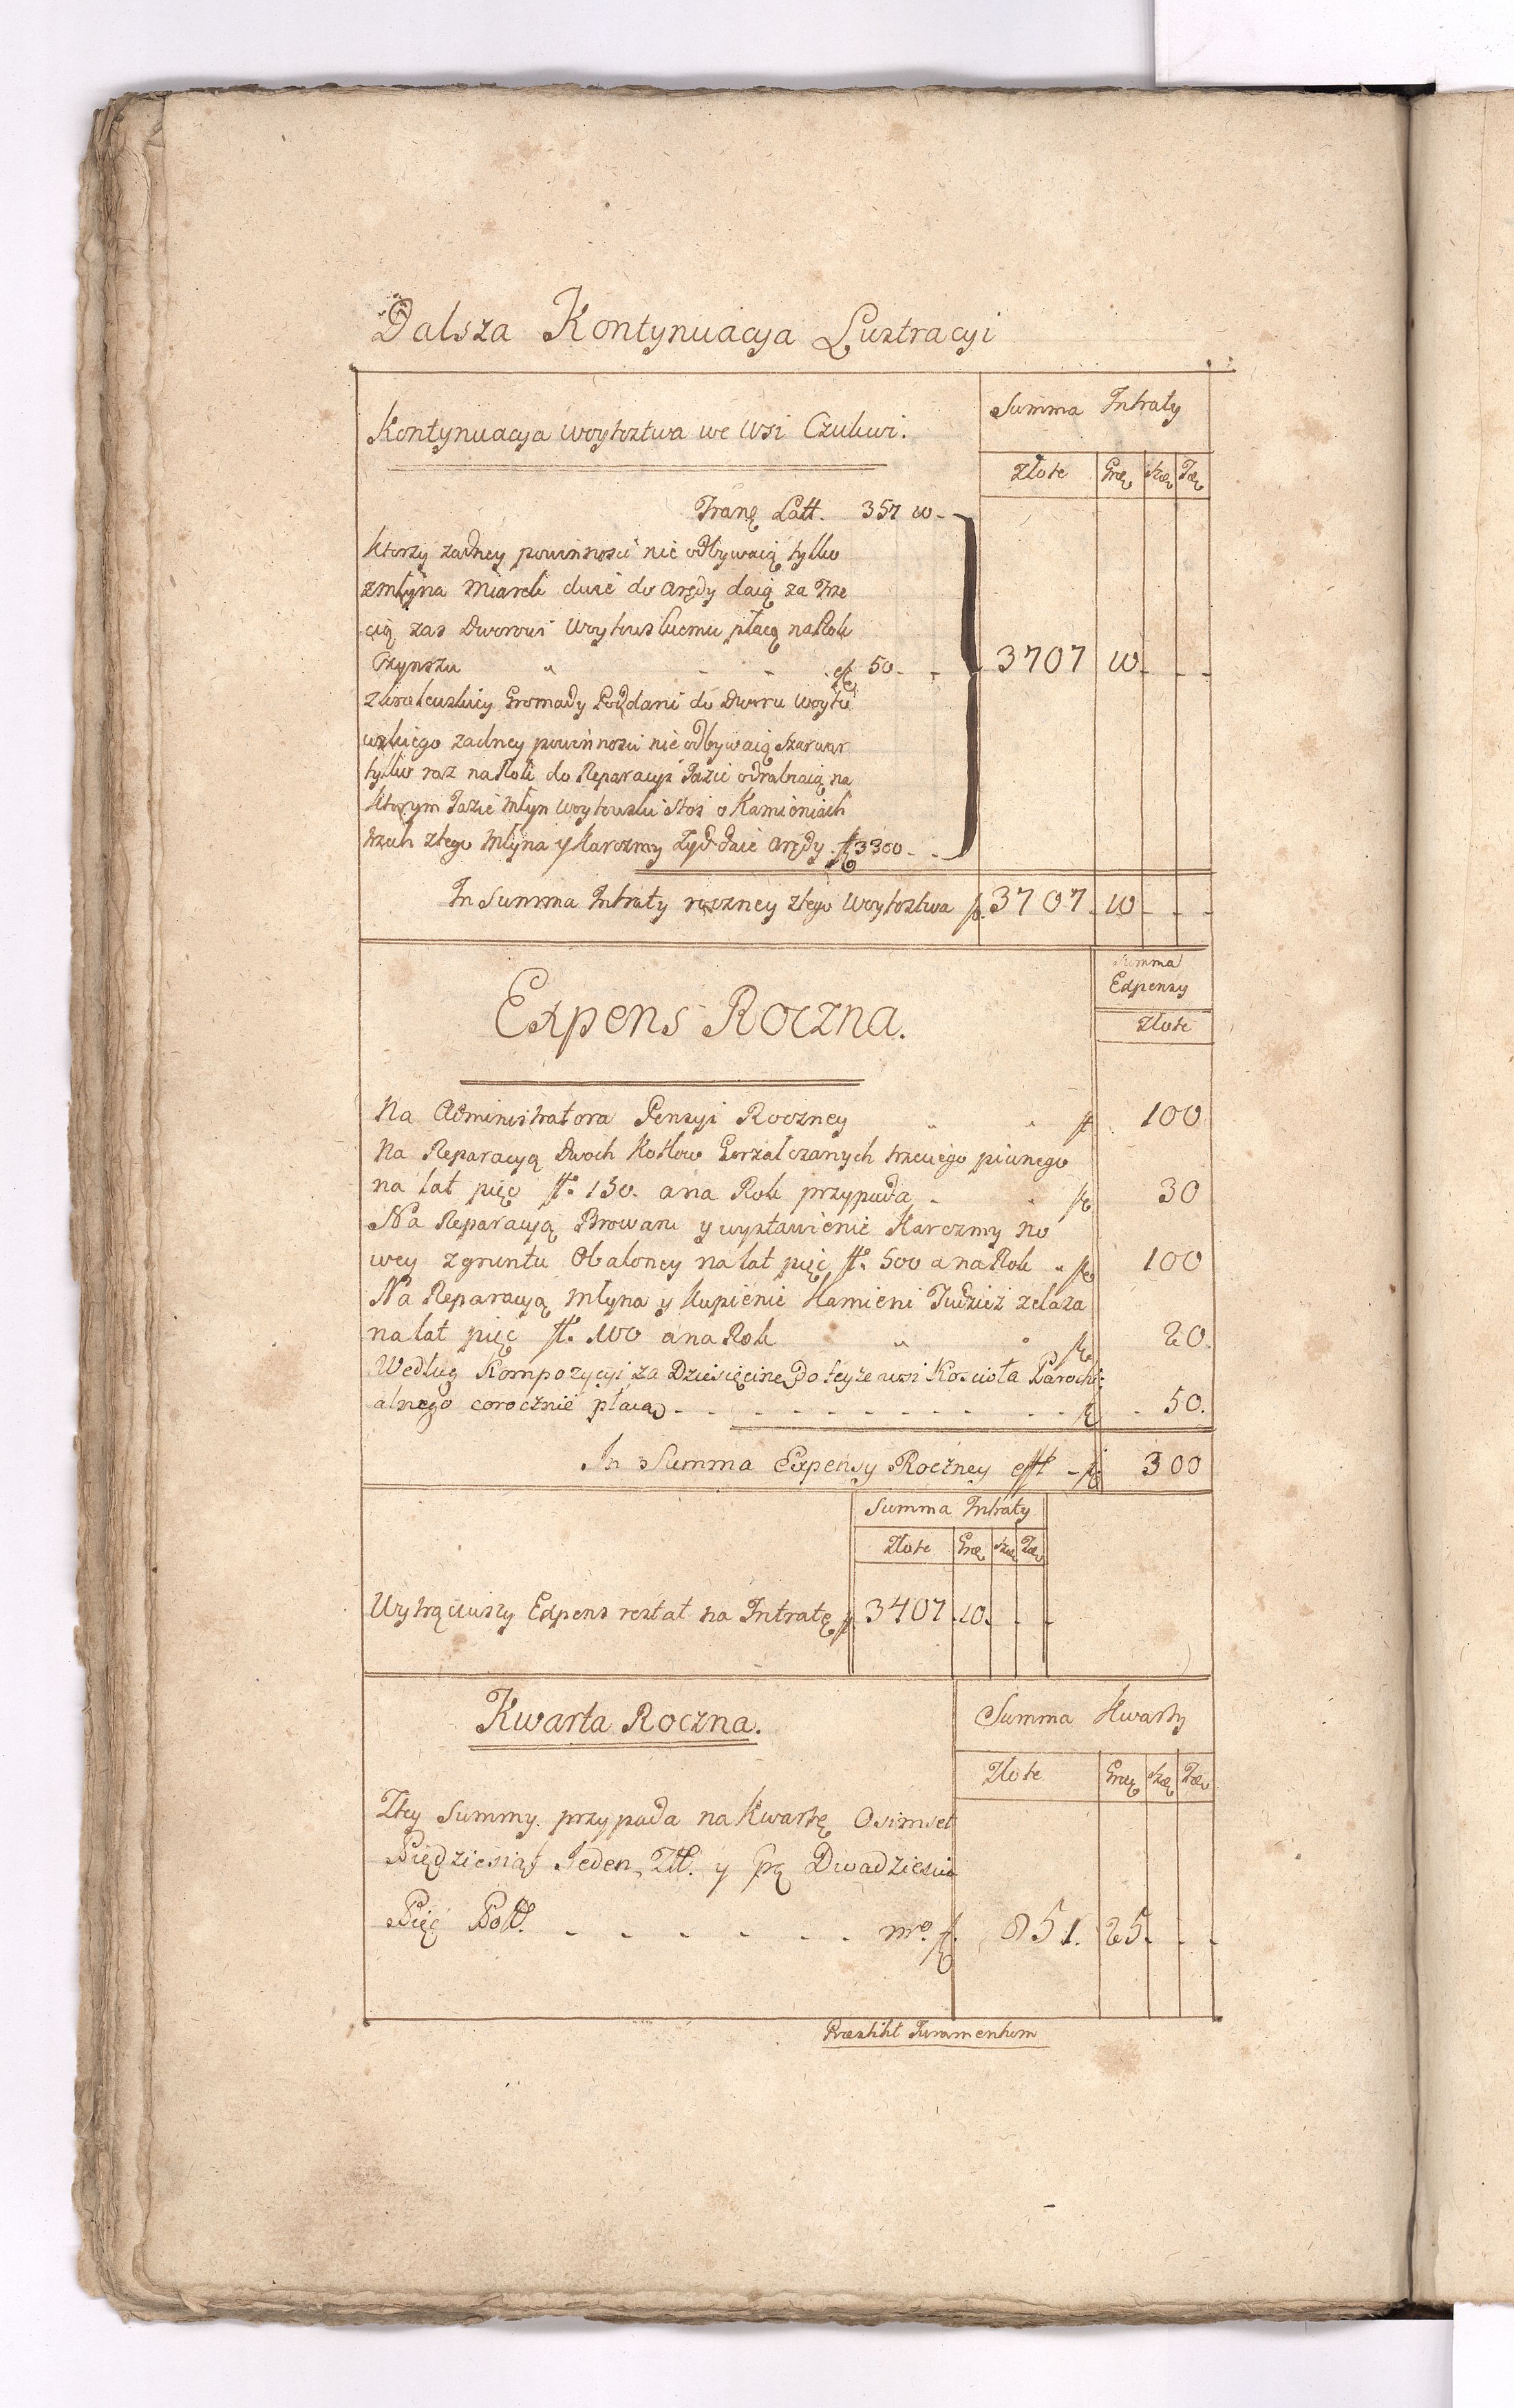 Dalsza Kontynuacya Lustracyi
Kontynuacya Woytostwa we Wsi Czukwi.
Summa Intraty
Złote Gro Sze
Latt. 357 10
ktorzy zadney powinnosci nie odbywaią tylko
zmłyna Miarek dwie do Arędy daią za Trze
cią zas Dworowi Woytowskiemu płacą na Rok
Czynszu fl 50
Gromady Poddani do Dworu Woyto
wskiego zadney powinnosci nie odbywaią Szarwark
tylko raz na Rok do Reparacyi Tazie odrabiaią na
ktorym Tazie Młyn Woytowski stoi o Kamieniach
trzech ztego Młyna y Karczmy Zyd daie Arędy fl 3300
3707 10
In Summa Intraty roczney ztego Woytostwa fl. 3707 10
Expens Roczna.
Summa
Expensy
Złote
Na Administratora Pensyi Roczney fl 100
Na Reparacyą Dwoch Kotłow Gorzałczanych trzeciego piwnego
na lat pięc fl. 150. a na Rok przypada fl 30
Na Reparacyą Browaru y wystawienie Karczmy no
wey zgruntu Obaloney na lat pięc fl. 500 a na Rok fl 100
Na Reparacyą Młyna y kupienie Kamieni Tudzież zelaza
na lat pięc fl. 100 a na Rok fl 20.
Według Kompozycyi za Dziesięcinę Do teyże wsi Koscioła Parochi
alnego corocznie płacą fl 50.
In Summa Expensy Roczney est fl 300
Summa Intraty
Złote Gro Sze
Wytrąciwszy Expens restat na Intratę fl 3407 10
Kwarta Roczna.
Summa Kwarty
Złote Gro Sze
Ztey Summy przypada na Kwartę Osimset
Pięćdziesiąt Jeden Zł. y gr Dwadziescia
Pięć Poll. mo. fl. 851. 25
Præstitit Juramentum